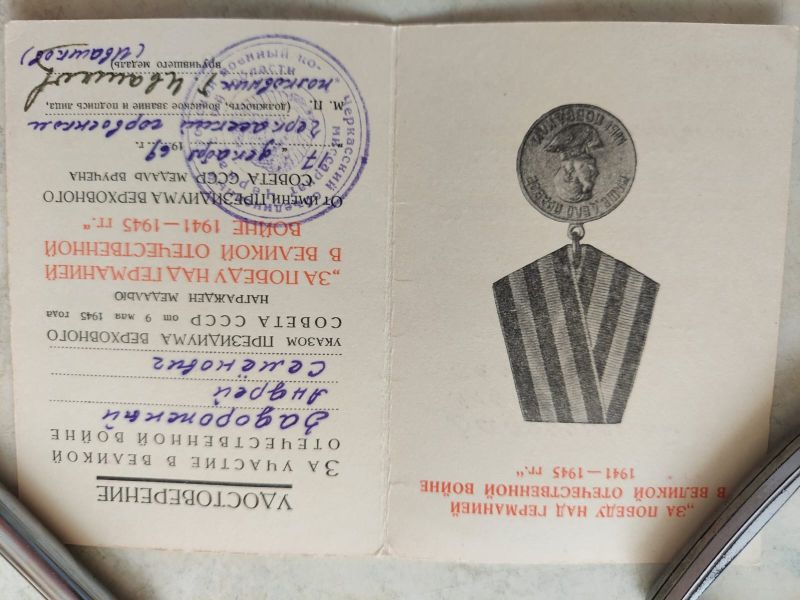 „ЗА ПОБЕДУ НАД ГЕРМАНИЕЙ
В ВЕЛИКОЙ ОТЕЧЕСТВЕННОЙ ВОЙНЕ
1941—1945 гг.“
НАШЕ ДЕЛО ПРАВОЕ
МЫ ПОБЕДИЛИ
УДОСТОВЕРЕНИЕ
ЗА УЧАСТИЕ В ВЕЛИКОЙ
ОТЕЧЕСТВЕННОЙ ВОЙНЕ
Задорожный
Андрей
Семёнович
УКАЗОМ ПРЕЗИДИУМА ВЕРХОВНОГО
СОВЕТА СССР от 9 мая 1945 года
НАГРАЖДЕН МЕДАЛЬЮ
„ЗА ПОБЕДУ НАД ГЕРМАНИЕЙ
В ВЕЛИКОЙ ОТЕЧЕСТВЕННОЙ
ВОЙНЕ 1941—1945 гг.“
ОТ ИМЕНИ ПРЕЗИДИУМА ВЕРХОВНОГО
СОВЕТА СССР МЕДАЛЬ ВРУЧЕНА
„17“ декабря 1969 г.
Черкасский горвоенком
М. П. (должность, воинское звание и подпись лица,
полковник Г. Ивашков
вручившего медаль)
(Ивашков)
Черкасский объединенный военный комиссариат